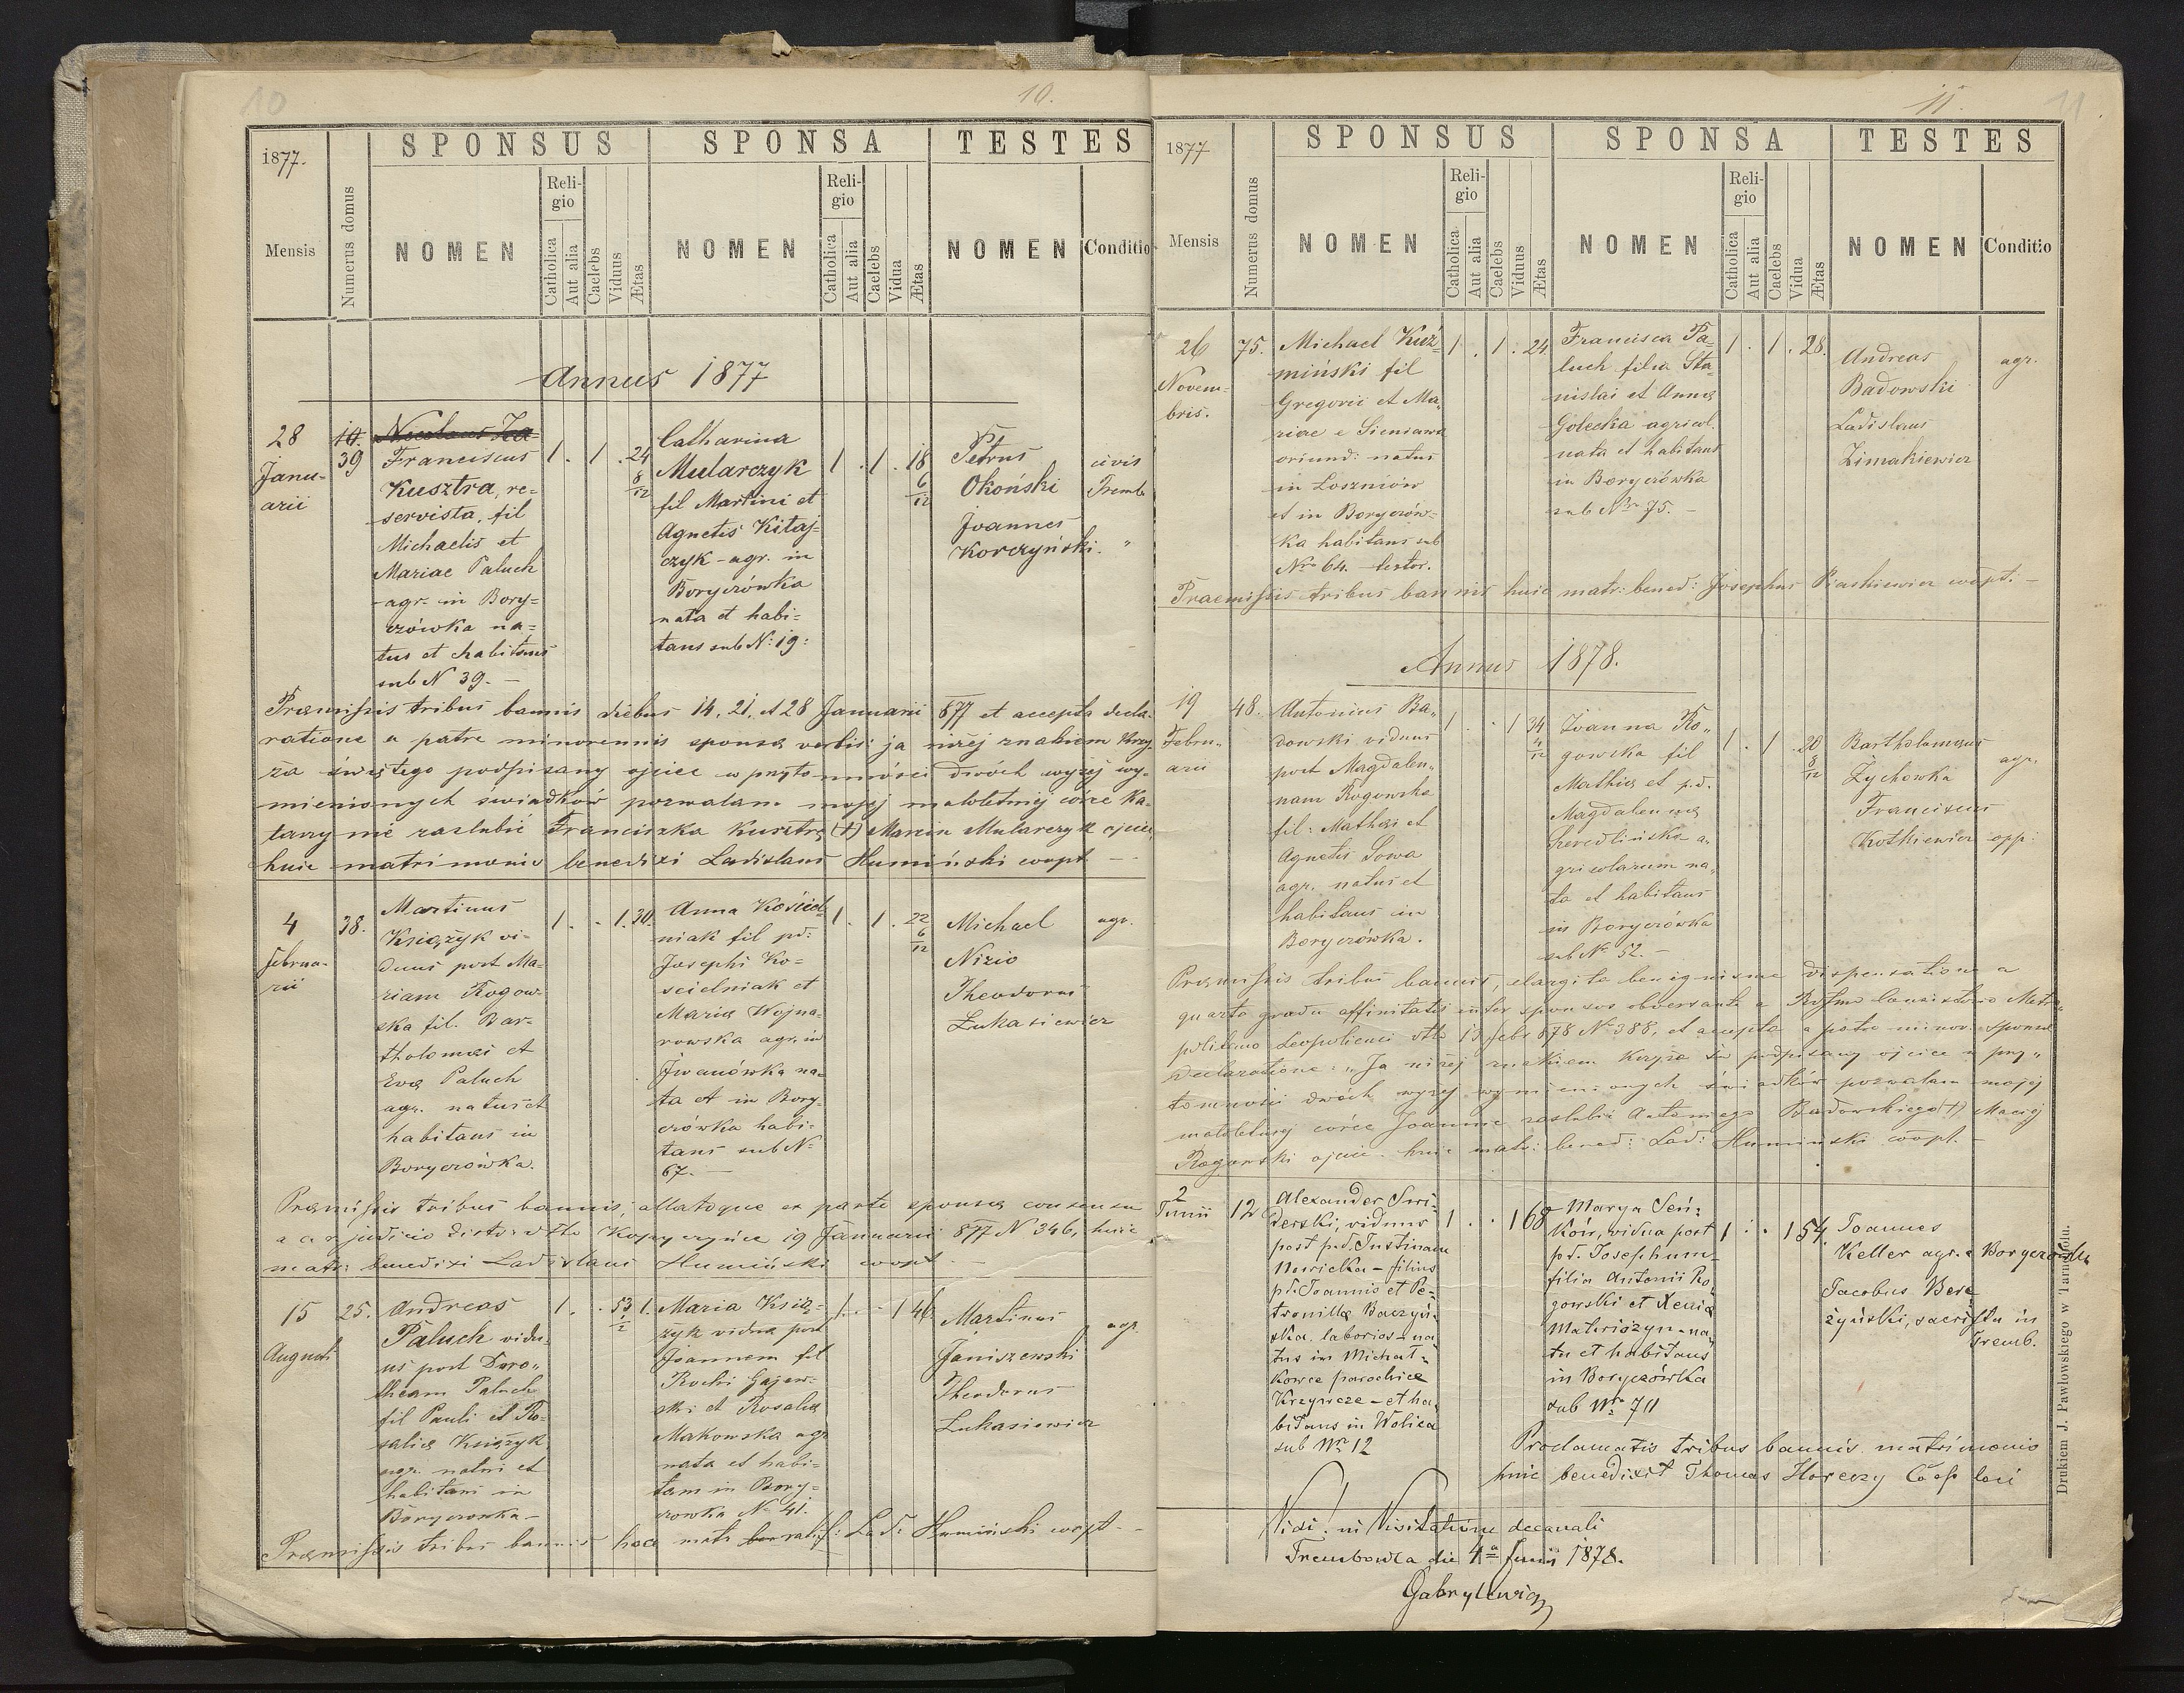 10
10.
1877.
SPONSUS
SPONSA
TESTES
Mensis
Numerus domus
NOMEN
Religio
Catholica
Aut alia
Caelebs
Viduus
Ætas
NOMEN
Religio
Catholica
Aut alia
Caelebs
Vidua
Ætas
NOMEN
Conditio
Annus 1877
28
Janu-
arii
10.
39
Nicolaus
Franciscus
Kusztra, re=
servista, fil
Michaelis et
Mariae Paluch
-agr. in Bory=
czówka na=
tus et habitans
sub N 39. -
1 . 1 . 24 8/12
Catharina
Mularczyk
fil Martini et
Agnetis Kitaj=
czyk - agr. in
Boryczówka
nata et habi=
tans sub N: 19:
1 . 1 . 18 6/12
Petrus
Okoński
Joannes
Korczyński.
civis
Tremb
"
Præmissis tribus bannis diebus 14, 21, et 28 Januarii 877 et accepta decla-
ratione a patre minorennis sponsæ verbis: ja niżej znakiem krzy-
ża świętego podpisany ojciec w przytomności dwóch wyżej wy-
mienionych świadków pozwalam mojej małoletniej córce Ka-
tarzynie zaslubić Franciszka Kusztrę (+) Marcin Mularczyk ojciec
huic matrimonio benedixi Ladislaus Humiński coopt -
4
Februa-
rii
38.
Martinus
Książyk vi-
duus post Ma-
riam Rogow-
ska fil. Bar-
tholomæi et
Evæ Paluch
agr. natus et
habitans in
Boryczówka.
1 . . 1. 30.
Anna Kościel-
niak fil pd:
Josephi Ko-
scielniak et
Mariæ Wojna-
rowska agr. in
Iwanówka na-
ta et in Bory-
czówka habi-
tans sub N-
67. -
1 . 1 . 22 6/12
Michael
Nizio
Theodorus
Łukasiewicz
agr.
Præmissis tribus bannis, allatoque ex parte sponsæ consensu
a judicio Kopyczyńce 19 Januarii 877 N 346, huic
matr: benedixi Ladislaus Humiński coopt -
15
Augusti
25.
Andreas
Paluch vidu-
us post Doro-
theam Paluch
fil Pauli et Ro-
saliæ Książyk
agr. natus et
habitans in
Boryczowka -
1 . . 53 1.
Maria Książ-
żyk vidua post
Joannem fil
Rochi Gajew-
ski et Rosaliæ
Makowska agr
nata et habi-
tans in Bory-
czowka N- 41.
1. - 1 46
Martinus
Janiszewski
Theodorus
Łukasiewicz
agr.
Præmissis tribus bannis hoc matr Lad: Humiński coopt -
11
11.
1877
SPONSUS
SPONSA
TESTES
Mensis
Numerus domus
NOMEN
Religio
Catholica
Aut alia
Caelebs
Viduus
Ætas
NOMEN
Religio
Catholica
Aut alia
Caelebs
Vidua
Ætas
NOMEN
Conditio
26
Novem-
bris.
75.
Michael Kuź-
miński fil
Gregorii et Ma-
riae e Sieniawa
oriund: natus
in Łoszniów
et in Boryczów-
ka habitans sub
Nro 64. - textor.
1 . 1 . 24
Francisca Pa-
luch filia Sta-
nislai et Annæ
Gołecka agricol.
nata et habitans
in Boryczówka
sub Nro 75. -
1 . 1 . 28.
Andreas
Badowski
Ladislaus
Zimakiewicz
agr.
Praemissis tribus bannis huic matr: bened: Josephus Piaskiewicz coopt: -
Annus 1878.
19
Febru-
arii
48.
Antonius Ba-
dowski viduus
post Magdale-
nam Rogowska
fil: Mathæi et
Agnetis Sowa
agr. natus et
habitans in
Boryczówka.
1 . . 1 34 4/12
Joanna Ro-
gowska fil
Mathiæ et p.d.
Magdalenæ
a-
gricolarum na-
ta et habitans
in Boryczówka
sub N- 52. -
1 . 1 . 20 8/12
Bartholomæus
Żychowka
Franciscus
Kotkiewicz
agr.
opp:
Præmissis tribus bannis, elargita benignissime dispensatione a
quarto gradu affinitatis inter sponsos obversante a Rssmo Consistorio Metro-
politano Leopoliensi dto 13 febr 878 N- 388, et accepta a patre minor. sponsæ
declaratione: "Ja niżej znakiem krzyża św podpisany ojciec w przy-
tomności dwóch wyżej wymienionych świadków pozwalam mojej
małoletniej córce Joannie zaslubić Antoniego Badowskiego (+) Maciej
Rogowski ojciec. huic matr: bened: Lad: Humiński coopt. -
2
Junii
12
Alexander Swi-
derski, viduus
post p.d. Justinam
Nawicka - filius
p.d. Joannis et Pe-
tronillæ Baczyń-
ska. laborios - na-
tus in Michał-
kowce parochiæ
Krzywcze - et ha-
bitans in Wolica
sub Nro 12
1 . . 1 68
Marya Seń-
ków, vidua post
p.d. Josephum -
filia Antonii Ro-
gowski et Xeniæ
Materiszyn - na-
ta et habitans
in Boryczówka
sub Nro 70
1 . . 1 54.
Joannes
Keller agr. e Boryczówka
Jacobus Bere-
żyński, sacrista in
Tremb.
Proclamatis tribus bannis matrimonio
huic benedixit Thomas Horeczy Coop loci
Vidi in Visitatione decanali
Trembowla die 4a Junii 1878.
Gabrylewicz
Drukiem J. Pawłowskiego w Tarnopolu.